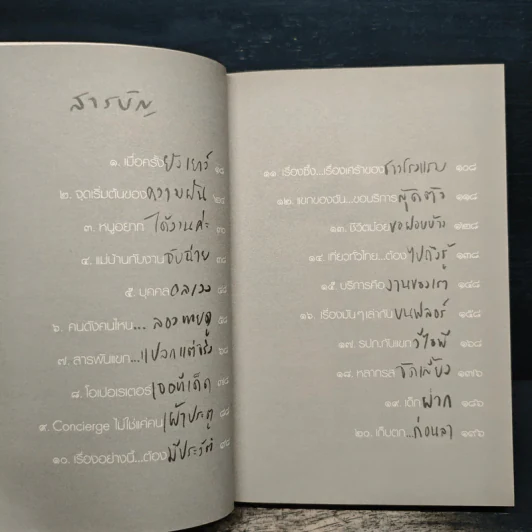 สารบัญ
๑. เมื่อครั้งยังเยาว์ ๑๘
๒. จุดเริ่มต้นของความฝัน
๓. หนูอยากได้งานค่ะ ๓๐
๔. แม่บ้านกับงานจับฉ่าย ๓๘
๕. บุคคลอลเวง ๔๘
๖. คนดังคนไหน...ลองทายดู ๕๘
๗. สารพันแขก...แปลกแต่จริง ๖๘
๘. โอเปอเรเตอร์เจอทีเด็ด ๗๘
๙. Concierge ไม่ใช่แค่คนเฝ้าประตู ๘๘
๑๐. เรื่องอย่างนี้...ต้องมีประวัติ ๙๘
๑๑ เรื่องซึ้ง...เรื่องเศร้าของชาวโรงแรม ๑๐๘
๑๒. แขกของฉัน...ขอบริการสุดตัว ๑๑๘
๑๓. ชีวิตน้อยขอฝอยบ้าง ๑๒๘
๑๔. เที่ยวทั่วไทย...ต้องไปถึงรู้ ๑๓๘
๑๕. บริการคืองานของเรา ๑๔๘
๑๖. เรื่องมันๆ เล่ากันบนฟลอร์ ๑๕๘
๑๗. รปภ.กับแขกวีไอพี ๑๖๘
๑๘. หลากรสจัดเลี้ยง ๑๗๖
๑๙. เด็กฝาก ๑๘๖
๒๐. เก็บตก...ก่อนลา ๑๙๖